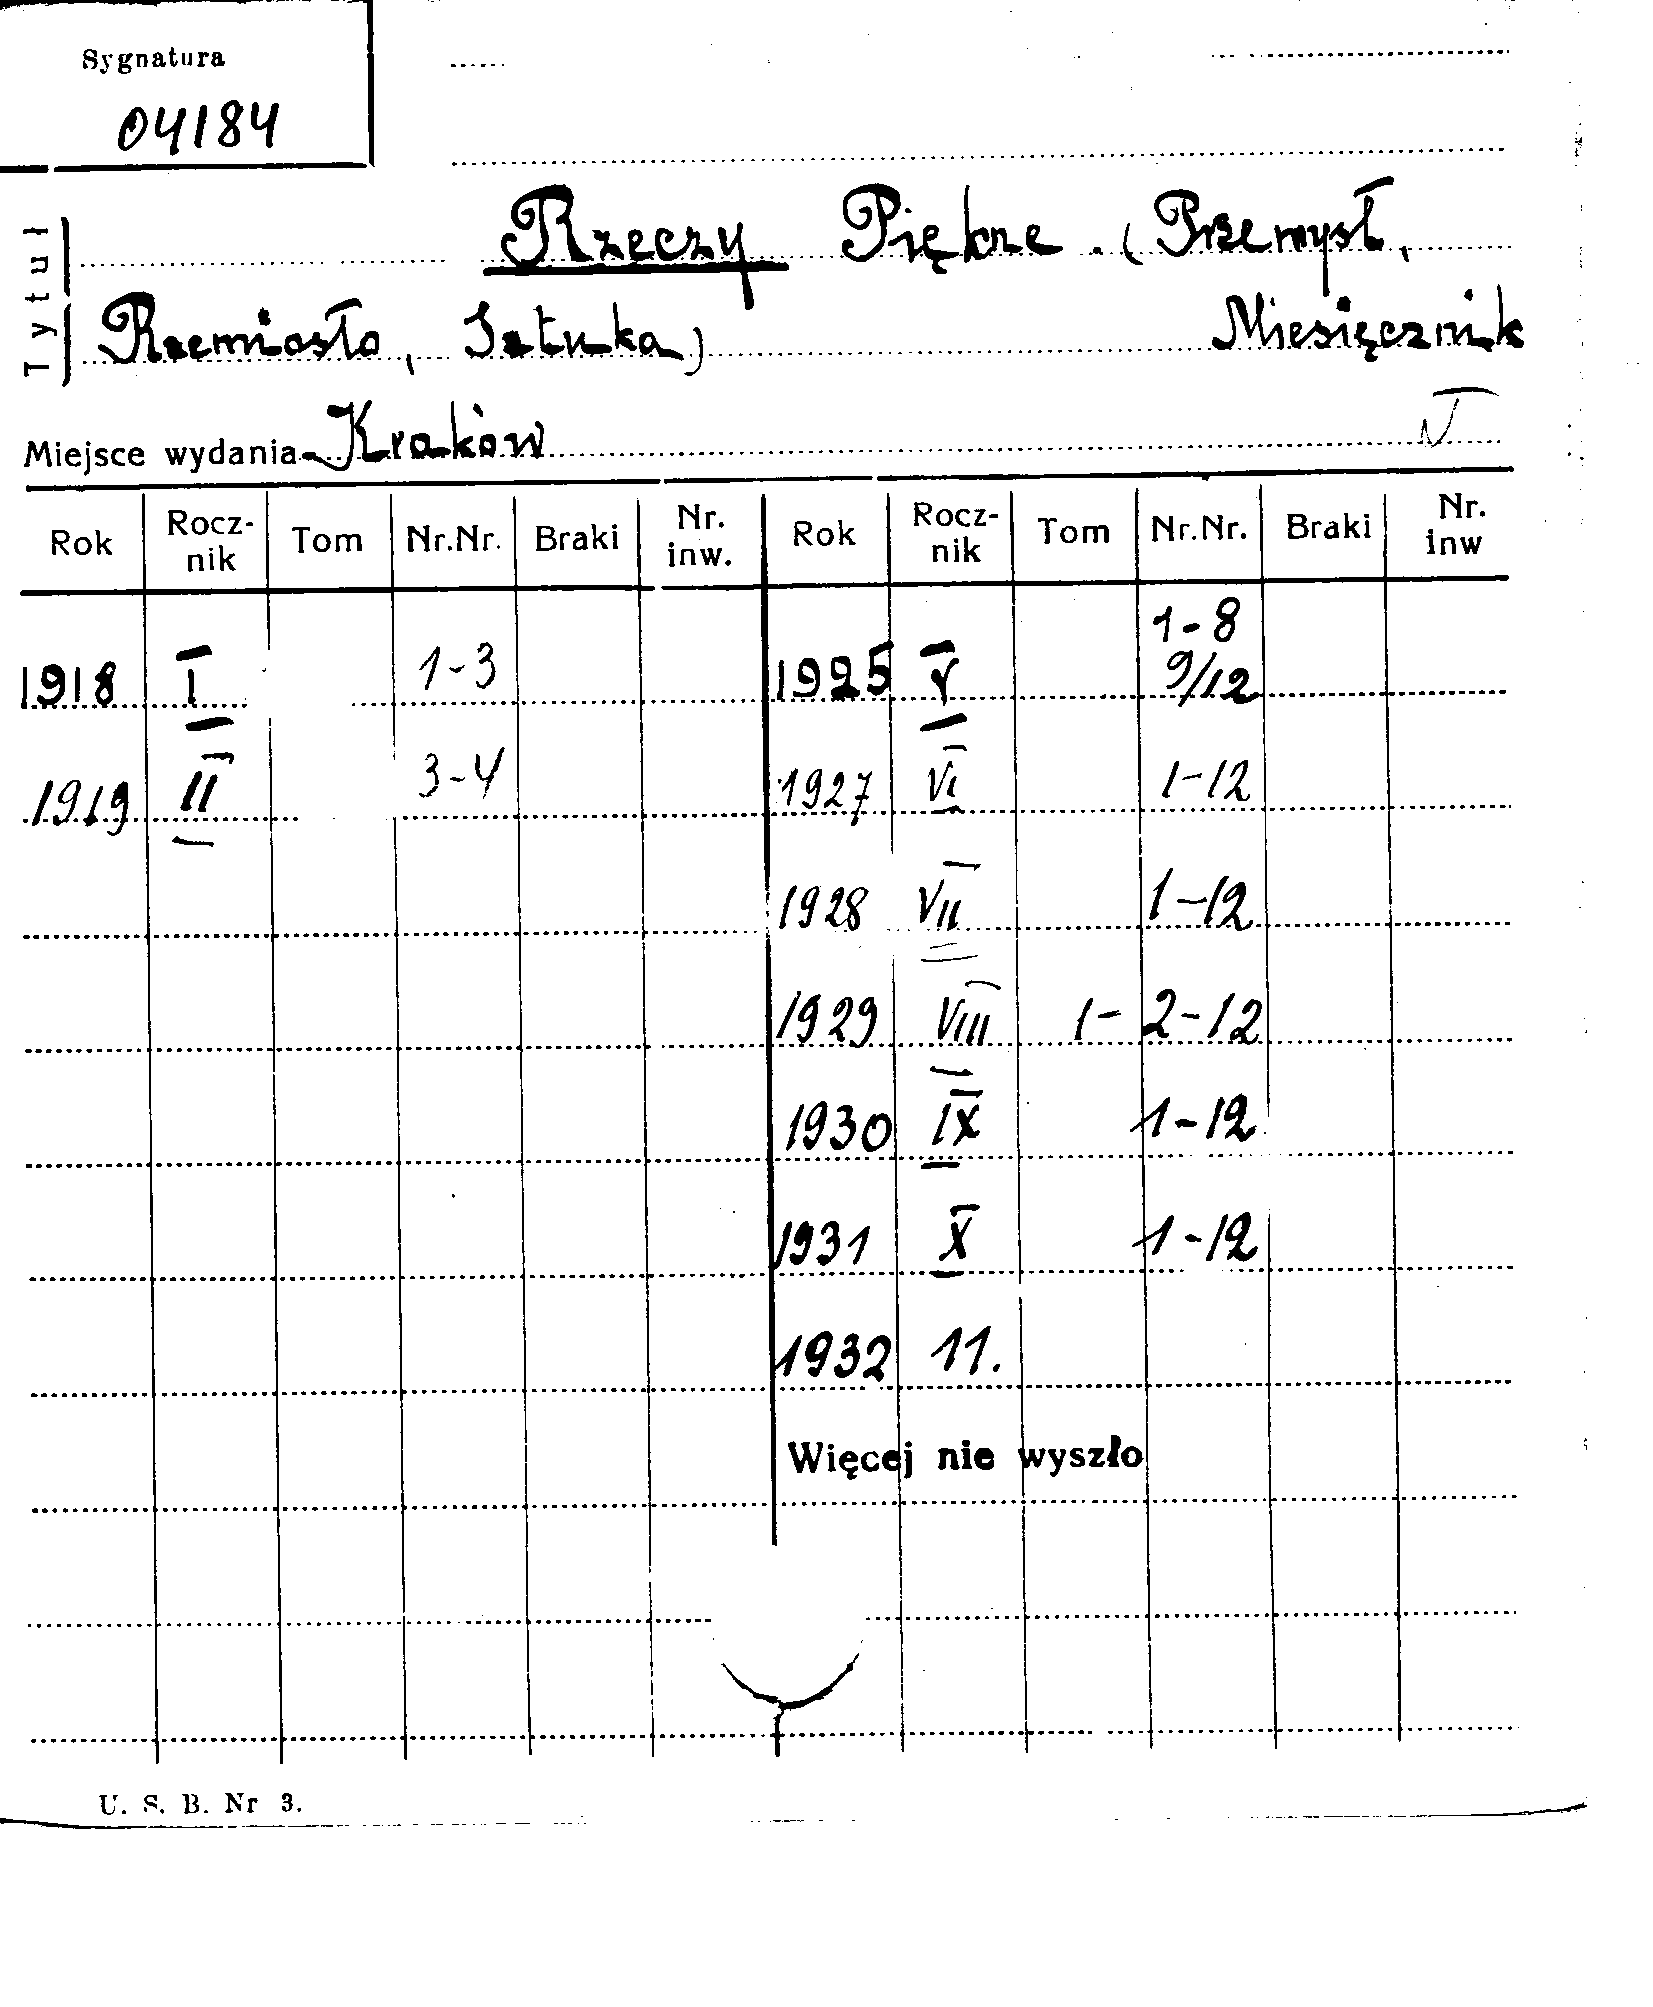 Sygnatura
04184
Tytuł
Rzeczy Piękne. (Przemysł,
Rzemiosło, Sztuka) Miesięcznik
Miejsce wydania Kraków
Rok Rocz-nik Tom Nr.Nr. Braki Nr. inw. Rok Rocz-nik Tom Nr.Nr. Braki Nr. inw
1918 I 1-3 1925 V 1-8 9/12
1919 II 3-4 1927 VI 1-12
1928 VII 1-12
1929 VIII 1- 2-12
1930 IX 1-12
1931 X 1-12
1932 11.
Więcej nie wyszło
U. S. B. Nr 3.